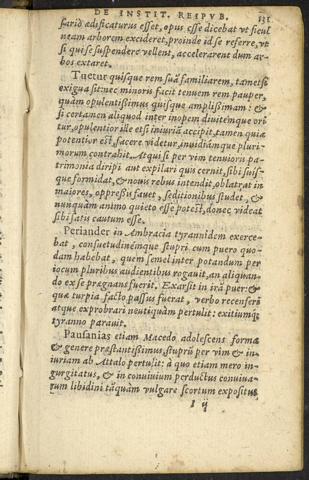 DE INSTIT. REIPVB. 131
suarid ædificaturus esset, opus esse dicebat vt ficul
neam arborem excideret, proinde id se referre, vt
si qui se suspendere vellent, accelerarent dum ar-
bos extaret.
Tuetur quisque rem suã familiarem, tametsi
exigua sit: nec minoris facit tenuem rem pauper,
quàm opulentissimus quisque amplissimam: &
si certamen aliquod inter inopem diuitémque ori
tur, opulentior ille etsi iniuriã accipit, tamen quia
potentior est, facere videtur, inuidiámque pluri-
morum contrahit. At qui si per vim tenuioris pa-
trimonia diripi aut expilari quis cernit, sibi quis-
que formidat, & nouis rebus intendit, oblatrat in
maiores, oppressis fauet, seditionibus studet, &
nunquàm animo quieto esse potest, donec videat
sibi satis cautum esse.
Periander in Ambracia tyrannidem exerce-
bat, consuetudinémque stupri cum puero quo-
dam habebat, quem semel inter potandum per
iocum pluribus audientibus rogauit, an aliquan-
do ex se prægnans fuerit. Exarsit in irã puer: &
quæ turpia facto passus fuerat, verbo recenseri
atque exprobrari neutiquàm pertulit: exitiumq;
tyranno parauit.
Pausanias etiam Macedo adolescens forma
& genere præstantissimus, stuprũ per vim & in-
iuriam ab Attalo pertulit: à quo etiam mero in-
gurgitatus, & in conuiuium perductus conuiua-
rum libidini tãquàm vulgare scortum expositus
I ij